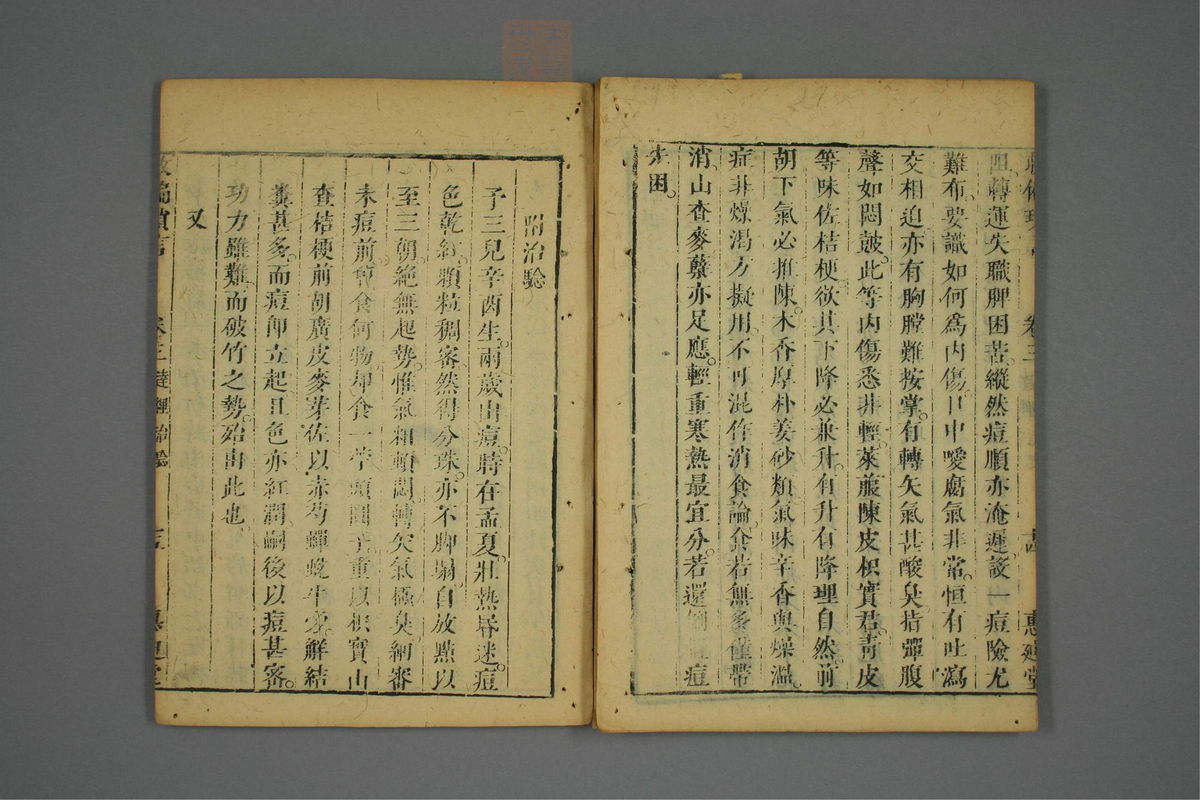 轉運失職脾困苦縱然痘順亦淹遲設一痘險尤
難布要識如何為內傷口中噯腐氣非常恒有吐瀉
交相迫亦有胸膛難按掌有轉矢氣甚酸臭拮彈腹
聲如悶皷此等內傷悉非輕萊菔陳皮枳實君青皮
等味佐桔梗欲其下降必兼升有升有降理自然前
胡下氣必推陳木香厚朴姜砂類氣味辛香與燥溫
症非燥渴方擬用不可混作消食論食若無多僅帶
消山查麥蘖亦足應輕重寒熱最宜分若還 痘
困
卷三
惠廸堂
附治驗
予三兒辛酉生兩歲出痘時在孟夏壯熱昏迷痘
色乾紅顆粒稠密然得分珠亦不脚塌自放點以
至三朝絕無起勢惟氣粗頓悶轉矢氣極臭細審
未痘前曾食何物却食一 重以枳實山
查桔梗前胡廣皮麥芽佐以赤芍蟬蛻牛蒡解結
糞甚多而痘即立起且色亦紅潤嗣後以痘甚密
功力雖難而破竹之勢始由此也
又
卷三
惠廸堂